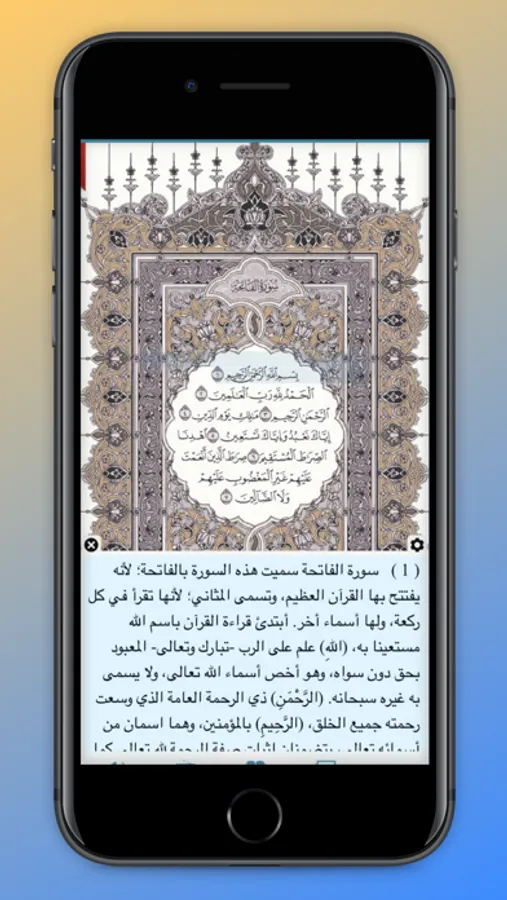 سورة الفاتحة
بسم الله الرحمن الرحيم ١
الحمد لله رب العالمين ٢
الرحمن الرحيم ٣ ملك يوم الدين ٤
إياك نعبد وإياك نستعين ٥ اهدنا
الصرط المستقيم ٦ صرط الذين أنعمت
عليهم غير المغضوب عليهم
ولا الضالين ٧
( 1 ) سورة الفاتحة سميت هذه السورة بالفاتحة؛ لأنه
يفتتح بها القرآن العظيم، وتسمى المثاني؛ لأنها تقرأ في كل
ركعة، ولها أسماء أخر. أبتدئ قراءة القرآن باسم الله
مستعينا به، (اللهِ) علم على الرب -تبارك وتعالى- المعبود
بحق دون سواه، وهو أخص أسماء الله تعالى، ولا يسمى
به غيره سبحانه. (الرَّحْمَنِ) ذي الرحمة العامة الذي وسعت
رحمته جميع الخلق، (الرَّحِيمِ) بالمؤمنين، وهما اسمان من
أسمائه تعالى، يتضمنان إثبات صفة الرحمة لله تعالى كما